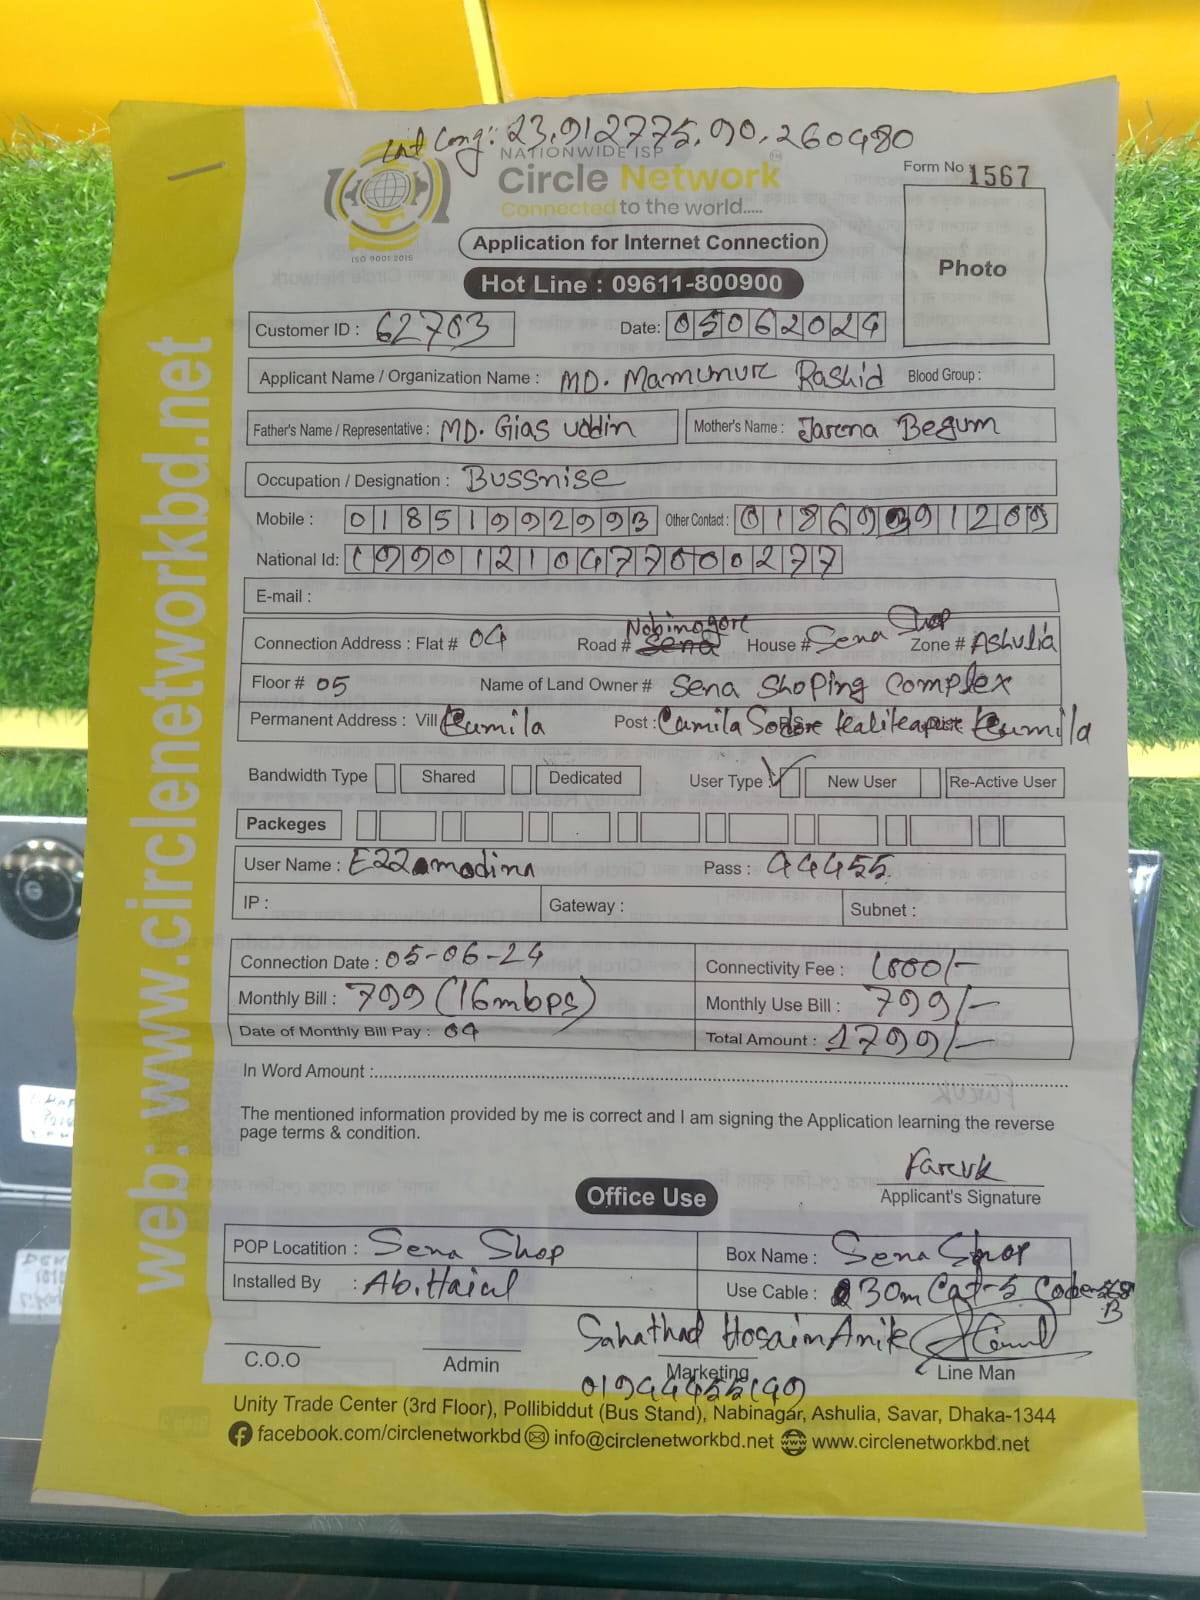 Lat Long: 23.912775, 90.260480
NATIONWIDE ISP
Circle Network
Connected to the world.....
ISO 9001:2015
Form No 1567
Photo
Application for Internet Connection
Hot Line : 09611-800900
Customer ID : 62703 Date: 05062024
Applicant Name / Organization Name : MD. Mamunur Rashid Blood Group :
Father's Name / Representative : MD. Gias uddin Mother's Name : Jarena Begum
Occupation / Designation : Bussnise
Mobile : 01851992993 Other Contact :
National Id: 19901210477000277
E-mail :
Connection Address : Flat # 04 Road # Nobinogore House # Sena Shop Zone # Ashulia
Floor # 05 Name of Land Owner # Sena Shoping Complex
Permanent Address : Vill Cumila Post : Cumila
Bandwidth Type Shared Dedicated User Type : New User Re-Active User
Packeges
User Name : E22amodina Pass : 44455
IP : Gateway : Subnet :
Connection Date : 05-06-24 Connectivity Fee : 1000/-
Monthly Bill : 799 (16mbps) Monthly Use Bill : 799/-
Date of Monthly Bill Pay : 04 Total Amount : 1799/-
In Word Amount :
The mentioned information provided by me is correct and I am signing the Application learning the reverse
page terms & condition.
Faruk
Applicant's Signature
Office Use
POP Locatition : Sena Shop Box Name : Sena Shop
Installed By : Ab. Haial Use Cable : 30m Cat-5
Sahathad Hosain Anik
C.O.O Admin Marketing Line Man
Unity Trade Center (3rd Floor), Pollibiddut (Bus Stand), Nabinagar, Ashulia, Savar, Dhaka-1344
facebook.com/circlenetworkbd info@circlenetworkbd.net www.circlenetworkbd.net
web: www.circlenetworkbd.net